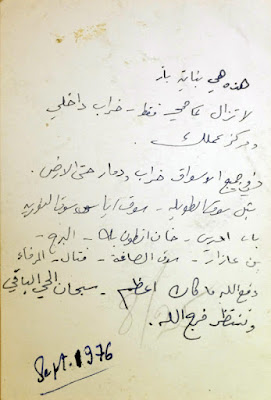 هذه هي بناية باز
لا تزال كما هي فقط - خراب داخلي
ومركز عملك
وفي جميع الاسواق خراب ودمار حتى الارض.
مثل سوق الطويلة - سوق اياس سوق النوريه
باب ادريس - خان انطون بك - البرج -
بن عازار - سوق الصاغة - قتال - المرفاء
دفع الله ما كان اعظم - سبحان الحي الباقي
وننتظر فرج الله.
Sept. 1976